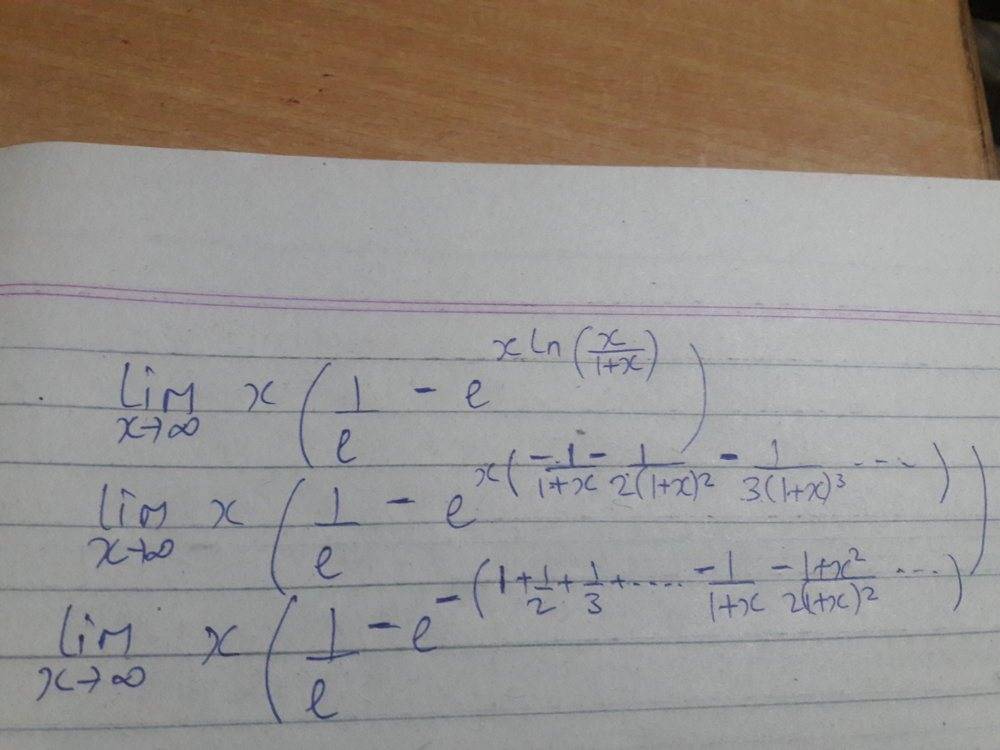 lim x→∞ x ( 1/e - e^(x ln (x/(1+x))) )
lim x→∞ x ( 1/e - e^(x( -1/(1+x) - 1/(2(1+x)²) - 1/(3(1+x)³) ....)) )
lim x→∞ x ( 1/e - e^(-(1 + 1/2 + 1/3 + ..... - 1/(1+x) - (1+x²)/(2(1+x)²) ....))